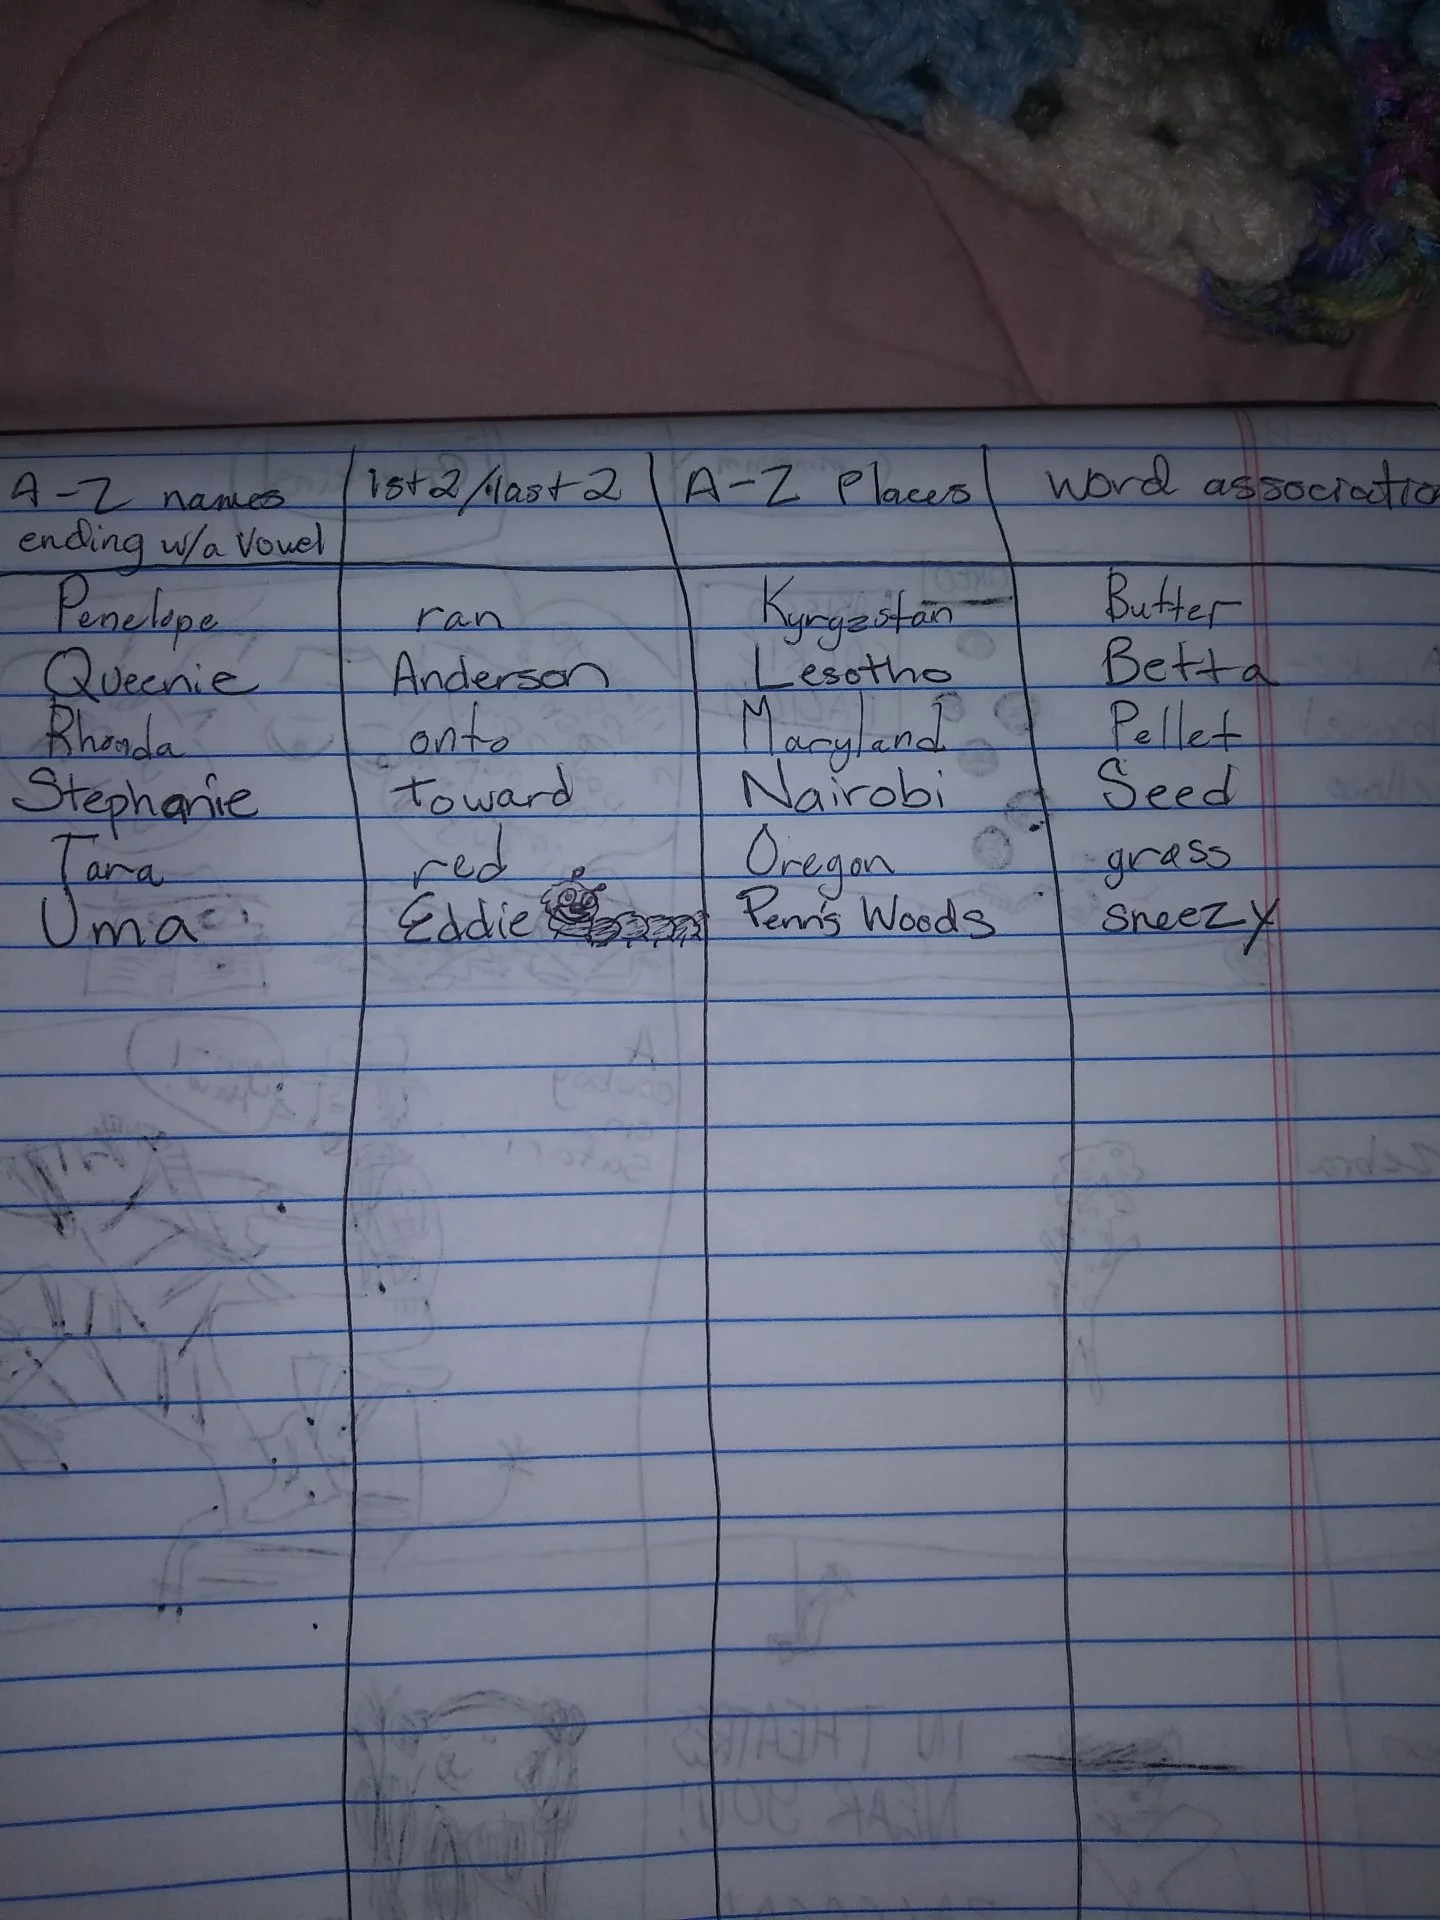 A-Z names | 1st 2/last 2 | A-Z Places | Word associatio
ending w/a Vowel
Penelope ran Kyrgzstan Butter
Queenie Anderson Lesotho Betta
Rhonda onto Maryland Pellet
Stephanie toward Nairobi Seed
Tara red Oregon grass
Uma Eddie Penn's Woods sneezy
A
cowboy
on
Safari
Zebra
IN THEATRES
NEAR YOU!